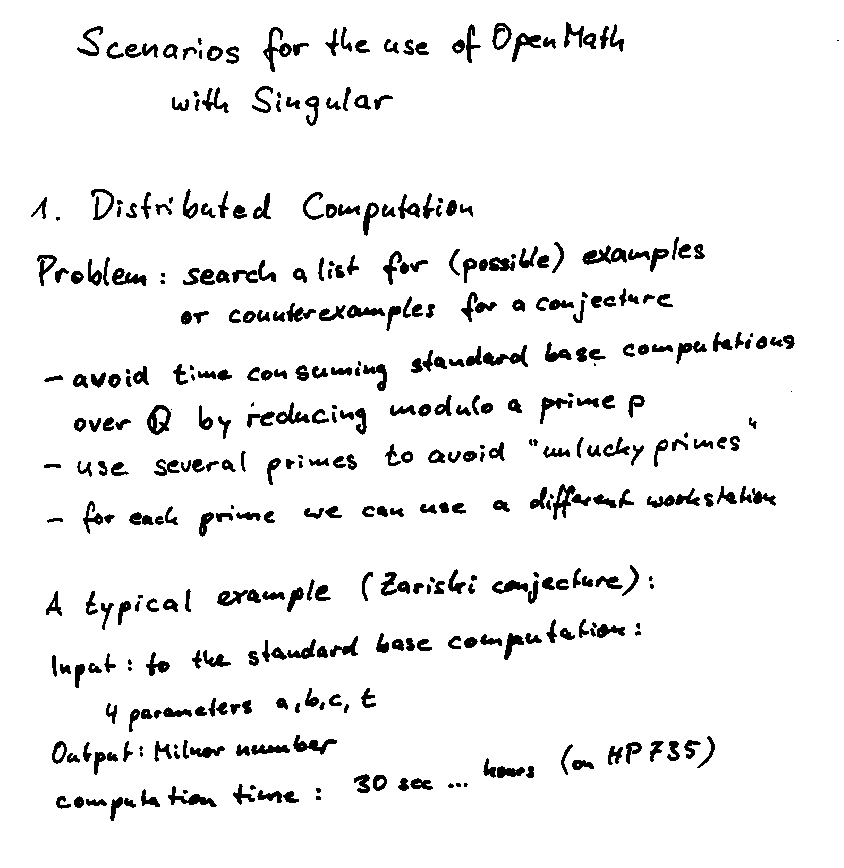 Scenarios for the use of OpenMath
with Singular
1. Distributed Computation
Problem: search a list for (possible) examples
or counterexamples for a conjecture
- avoid time consuming standard base computations
over Q by reducing modulo a prime p
- use several primes to avoid "unlucky primes"
- for each prime we can use a different workstation
A typical example (Zariski conjecture):
Input: to the standard base computation:
4 parameters a,b,c,t
Output: Milnor number
computation time: 30 sec ... hours (on HP735)